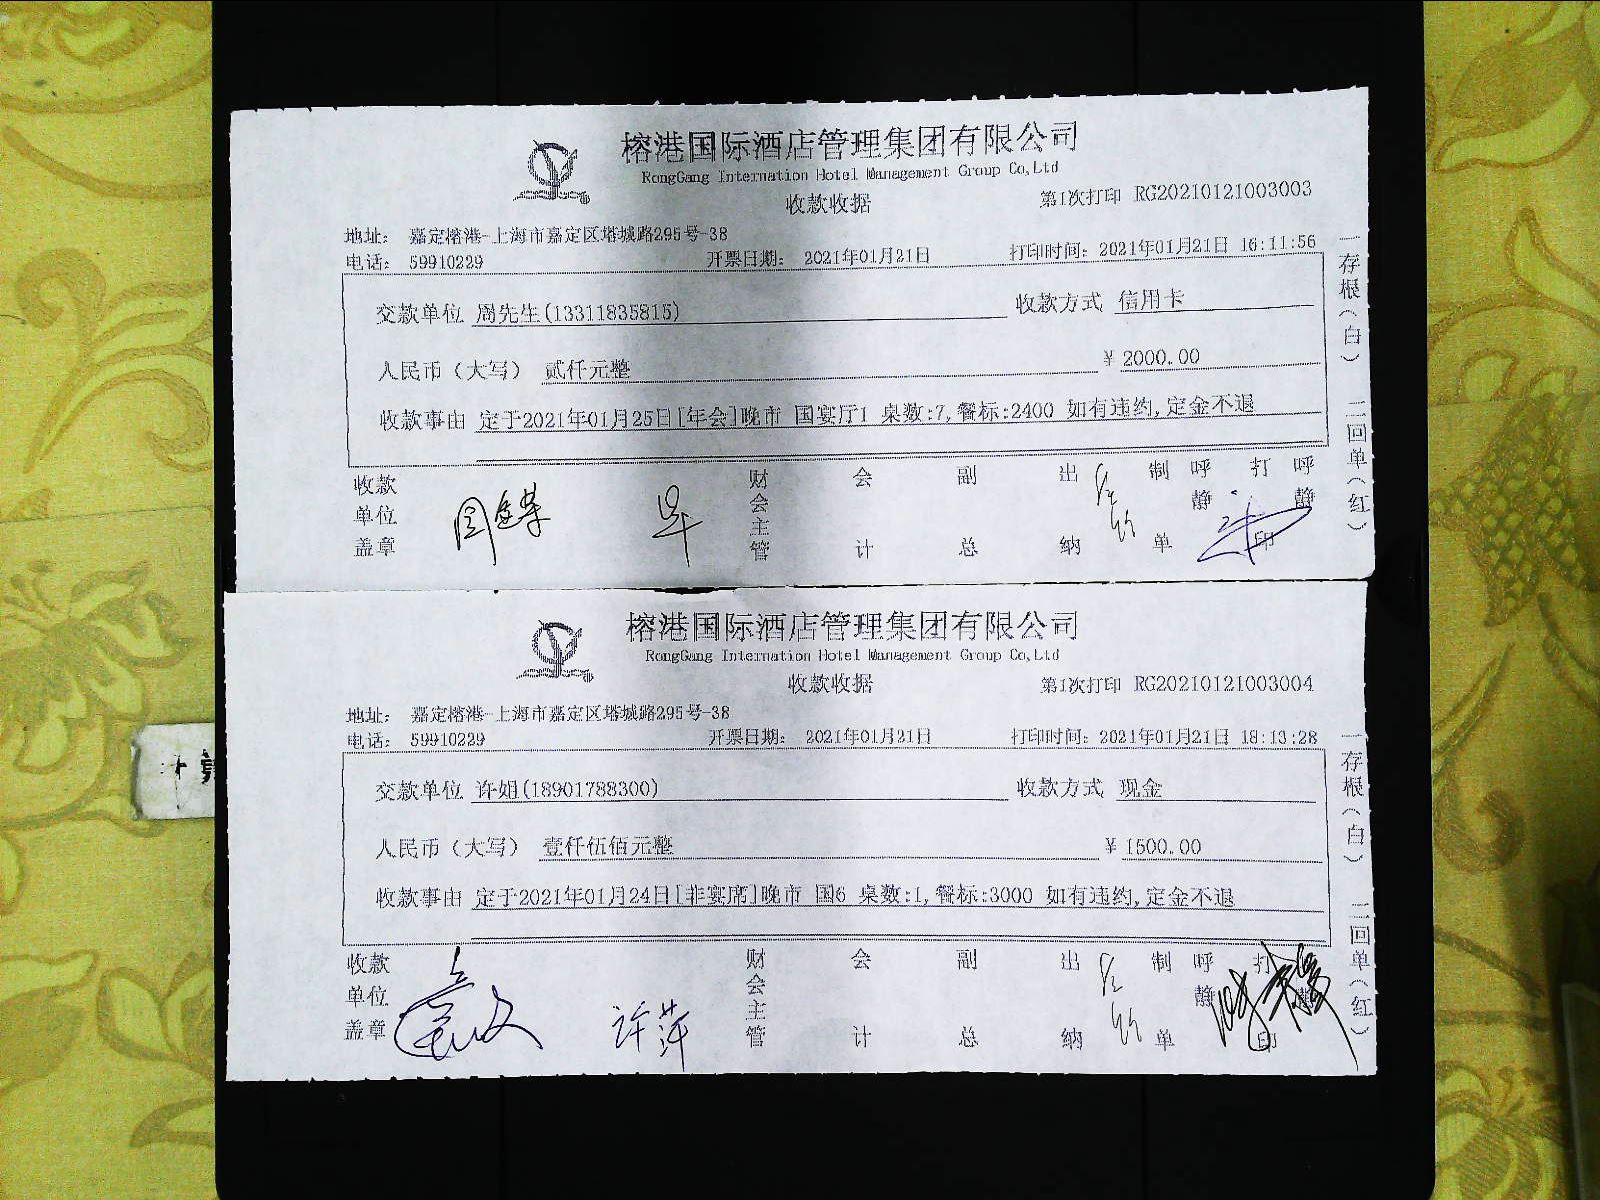 榕港国际酒店管理集团有限公司
RongGang Internation Hotel Management Group Co,Ltd
收款收据
第1次打印 RG20210121003003
地址: 嘉定榕港-上海市嘉定区塔城路295号-38
电话: 59910229 开票日期: 2021年01月21日 打印时间: 2021年01月21日 16:11:56
交款单位 周先生(13311835815) 收款方式 信用卡
人民币（大写） 贰仟元整 ￥ 2000.00
收款事由 定于2021年01月25日[年会]晚市 国宴厅1 桌数:7,餐标:2400 如有违约,定金不退
收款单位盖章 财会主管 会计 副总 出纳 制单 呼静 打印 呼静
一存根（白） 二回单（红）
榕港国际酒店管理集团有限公司
RongGang Internation Hotel Management Group Co,Ltd
收款收据
第1次打印 RG20210121003004
地址: 嘉定榕港-上海市嘉定区塔城路295号-38
电话: 59910229 开票日期: 2021年01月21日 打印时间: 2021年01月21日 18:13:28
交款单位 许姐(18901788300) 收款方式 现金
人民币（大写） 壹仟伍佰元整 ￥ 1500.00
收款事由 定于2021年01月24日[非宴席]晚市 国6 桌数:1,餐标:3000 如有违约,定金不退
收款单位盖章 许萍 财会主管 会计 副总 出纳 制单 呼静 打印
一存根（白） 二回单（红）